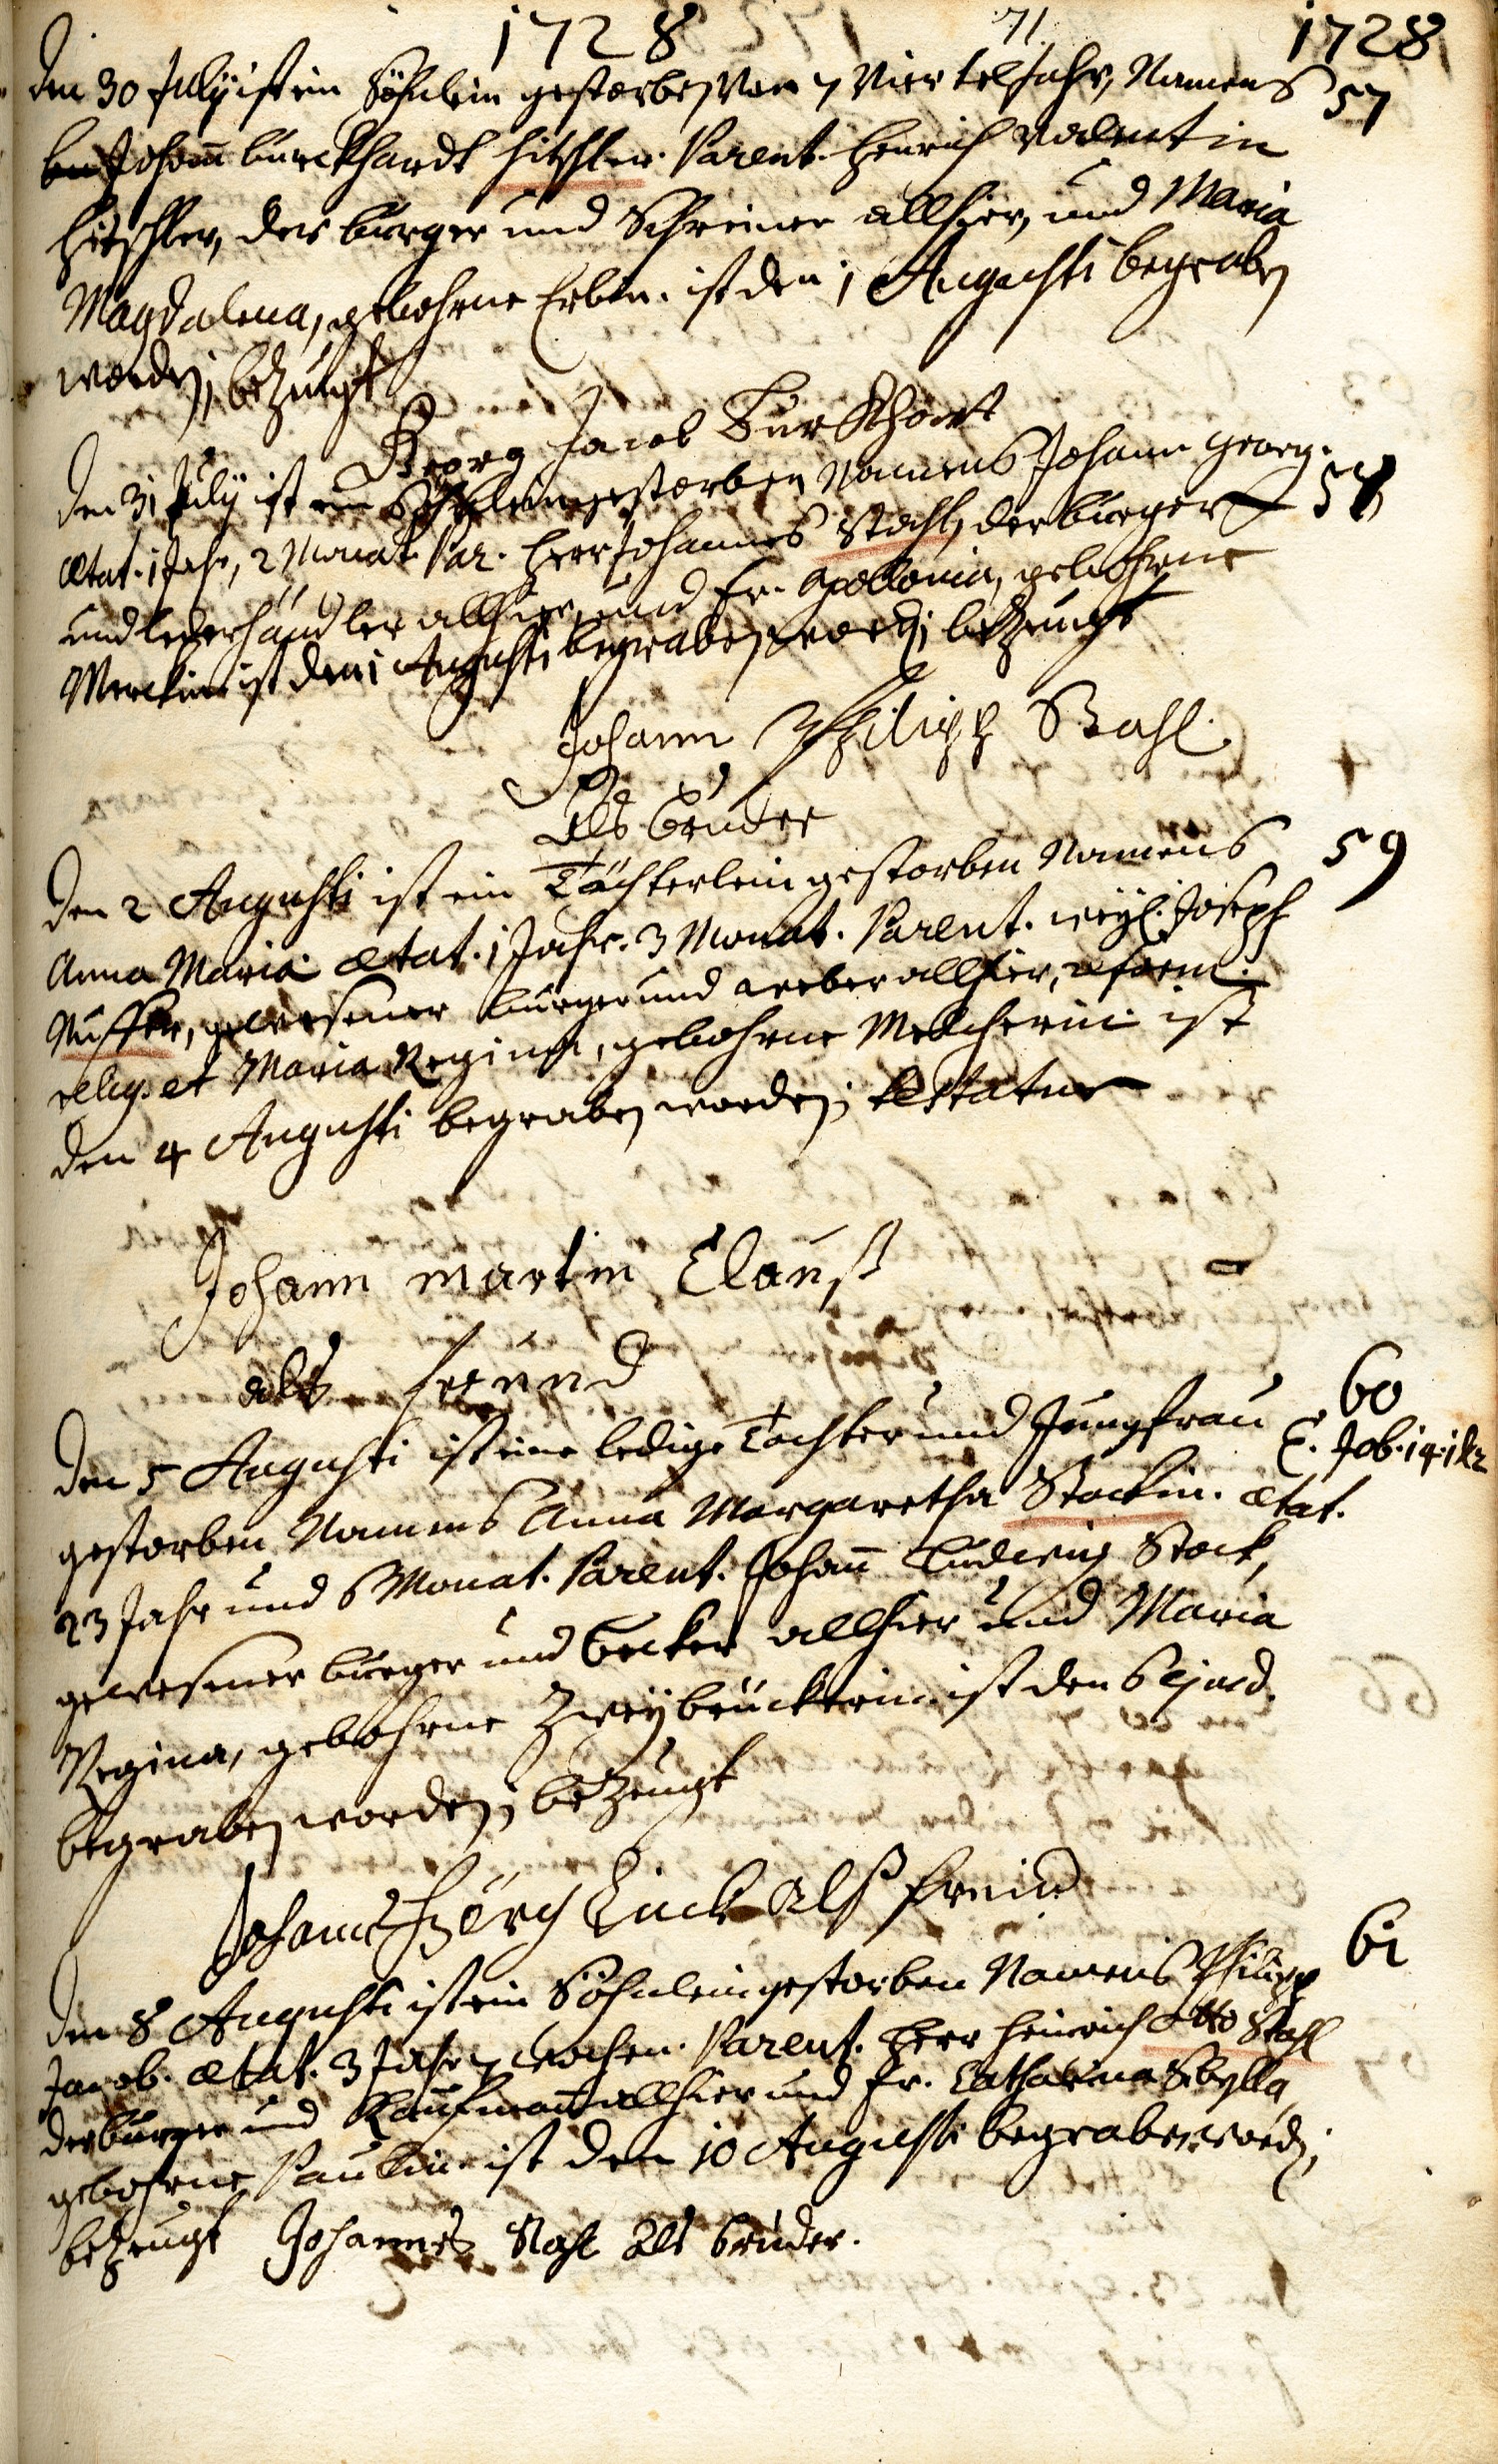 1728 71 1728
Den 30 July ist ein Söhnlein gestorben von 7 Viertel Jahr, Namens 57
Johann burckhardt Hitschler. Parent. Henrich Valentin
Hitschler, der burger und Schreiner allhier, und Maria
Magdalena, gebohrne Erbin. ist den 1 Augusti begraben
worden; bezeugt
Georg Jacob Burckhart
Den 31 July ist ein Söhnlein gestorben Namens Johann Georg.
ætat. 1 Jahr, 2 Monat. Par. Herr Johannes Stahl, der burger 58
und lederhändler allhier, und Fr. Apollonia, gebohrne
Merckin. ist den 1 Augusti begraben worden; bezeugt
Johann Philipp Stahl.
Als bruder
Den 2 Augusti ist ein Töchterlein gestorben Namens 59
Anna Maria. ætat. 1 Jahr. 3 Monat. Parent. weyl. Joseph
gewesener burger und weber allhier, reform.
relig. et Maria Regina, gebohrne Melcherin. ist
den 4 Augusti begraben worden; testatur
Johann martin Clauß
als freund
60
Den 5 Augusti ist eine ledige Tochter und Jungfrau T. Job. 14. 1 & 2
gestorben Namens Anna Margaretha Stockin. ætat.
23 Jahr und 6 Monat. Parent. Johann Ludwig Stock,
gewesener burger und becker allhier und Maria
Regina, gebohrne Zweybrückerin. ist den 6 ejusd.
begraben worden; bezeugt
Johannes Görg Linck Alß freind
Den 8 Augusti ist ein Söhnlein gestorben Namens Philipp 61
Jacob. ætat. 3 Jahr 7 wochen. Parent. Herr Heinrich Otto Stahl
der burger und Kaufmann allhier und Fr. Catharina Sibylla,
gebohrne Paulin. ist den 10 Augusti begraben worden;
bezeugt Johannes Stahl Als bruder.